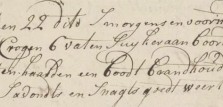 en 22 dito Smorgens en voorm
Crogen 6 vaten Suyker aan boord
en haalden een boodt brandhout
Savondts en Snagts goedt weer